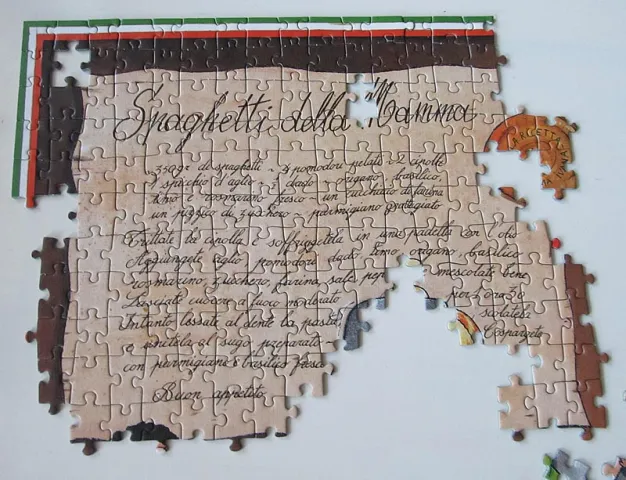 Spaghetti della Mamma
350gr di spaghetti - 4 pomodori pelati - 2 cipolle
1 spicchio d'aglio - 1 dado - origano, basilico,
timo e rosmarino fresco - un cucchiaio di farina
un pizzico di zucchero - parmigiano grattugiato
Tritate la cipolla e soffriggetela in una padella con l'olio
Aggiungete aglio, pomodori, dado, timo, origano, basilico
rosmarino, zucchero, farina, sale, pep mescolate bene
Lasciate cuocere a fuoco moderato per 1 ora
Intanto lessate al dente la pasta scolatela
e unitela al sugo preparato
con parmigiano e basilico fresco
Buon appetito
RICETTA